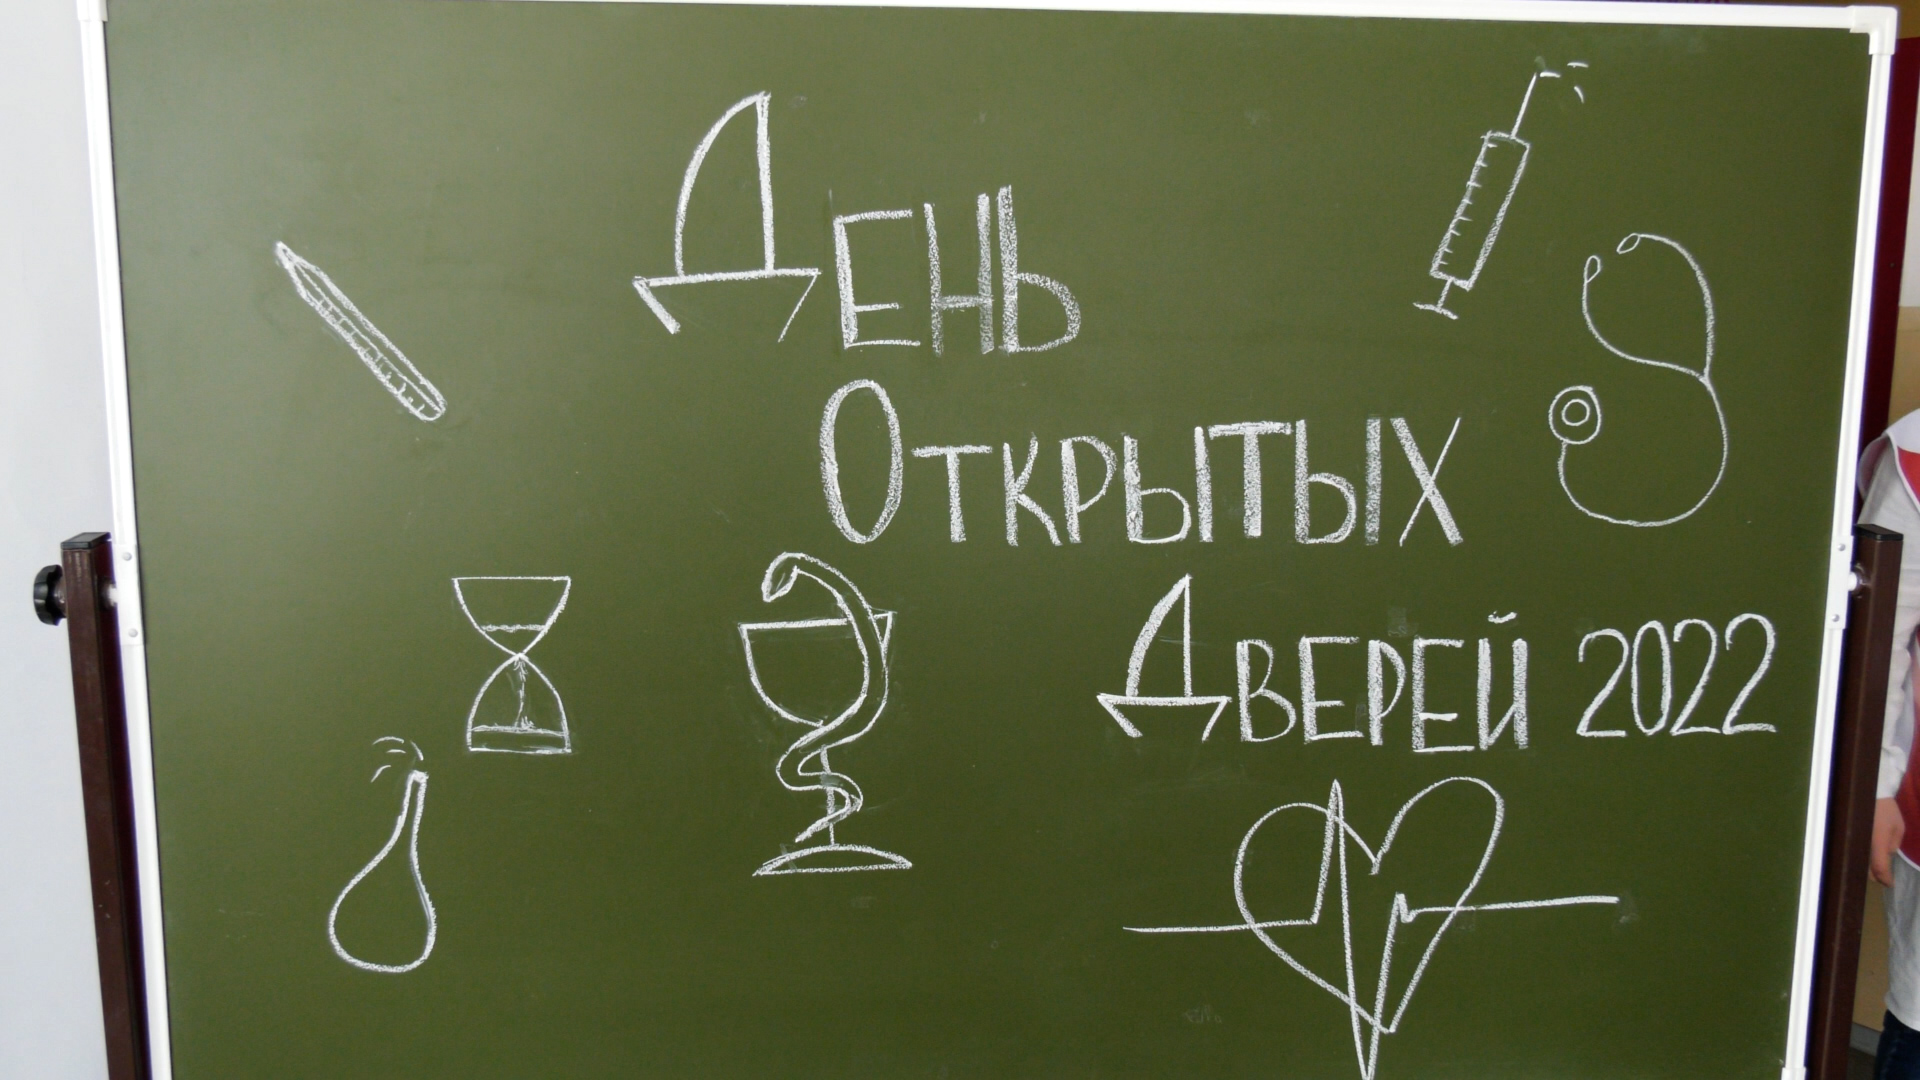 День
Открытых
Дверей 2022